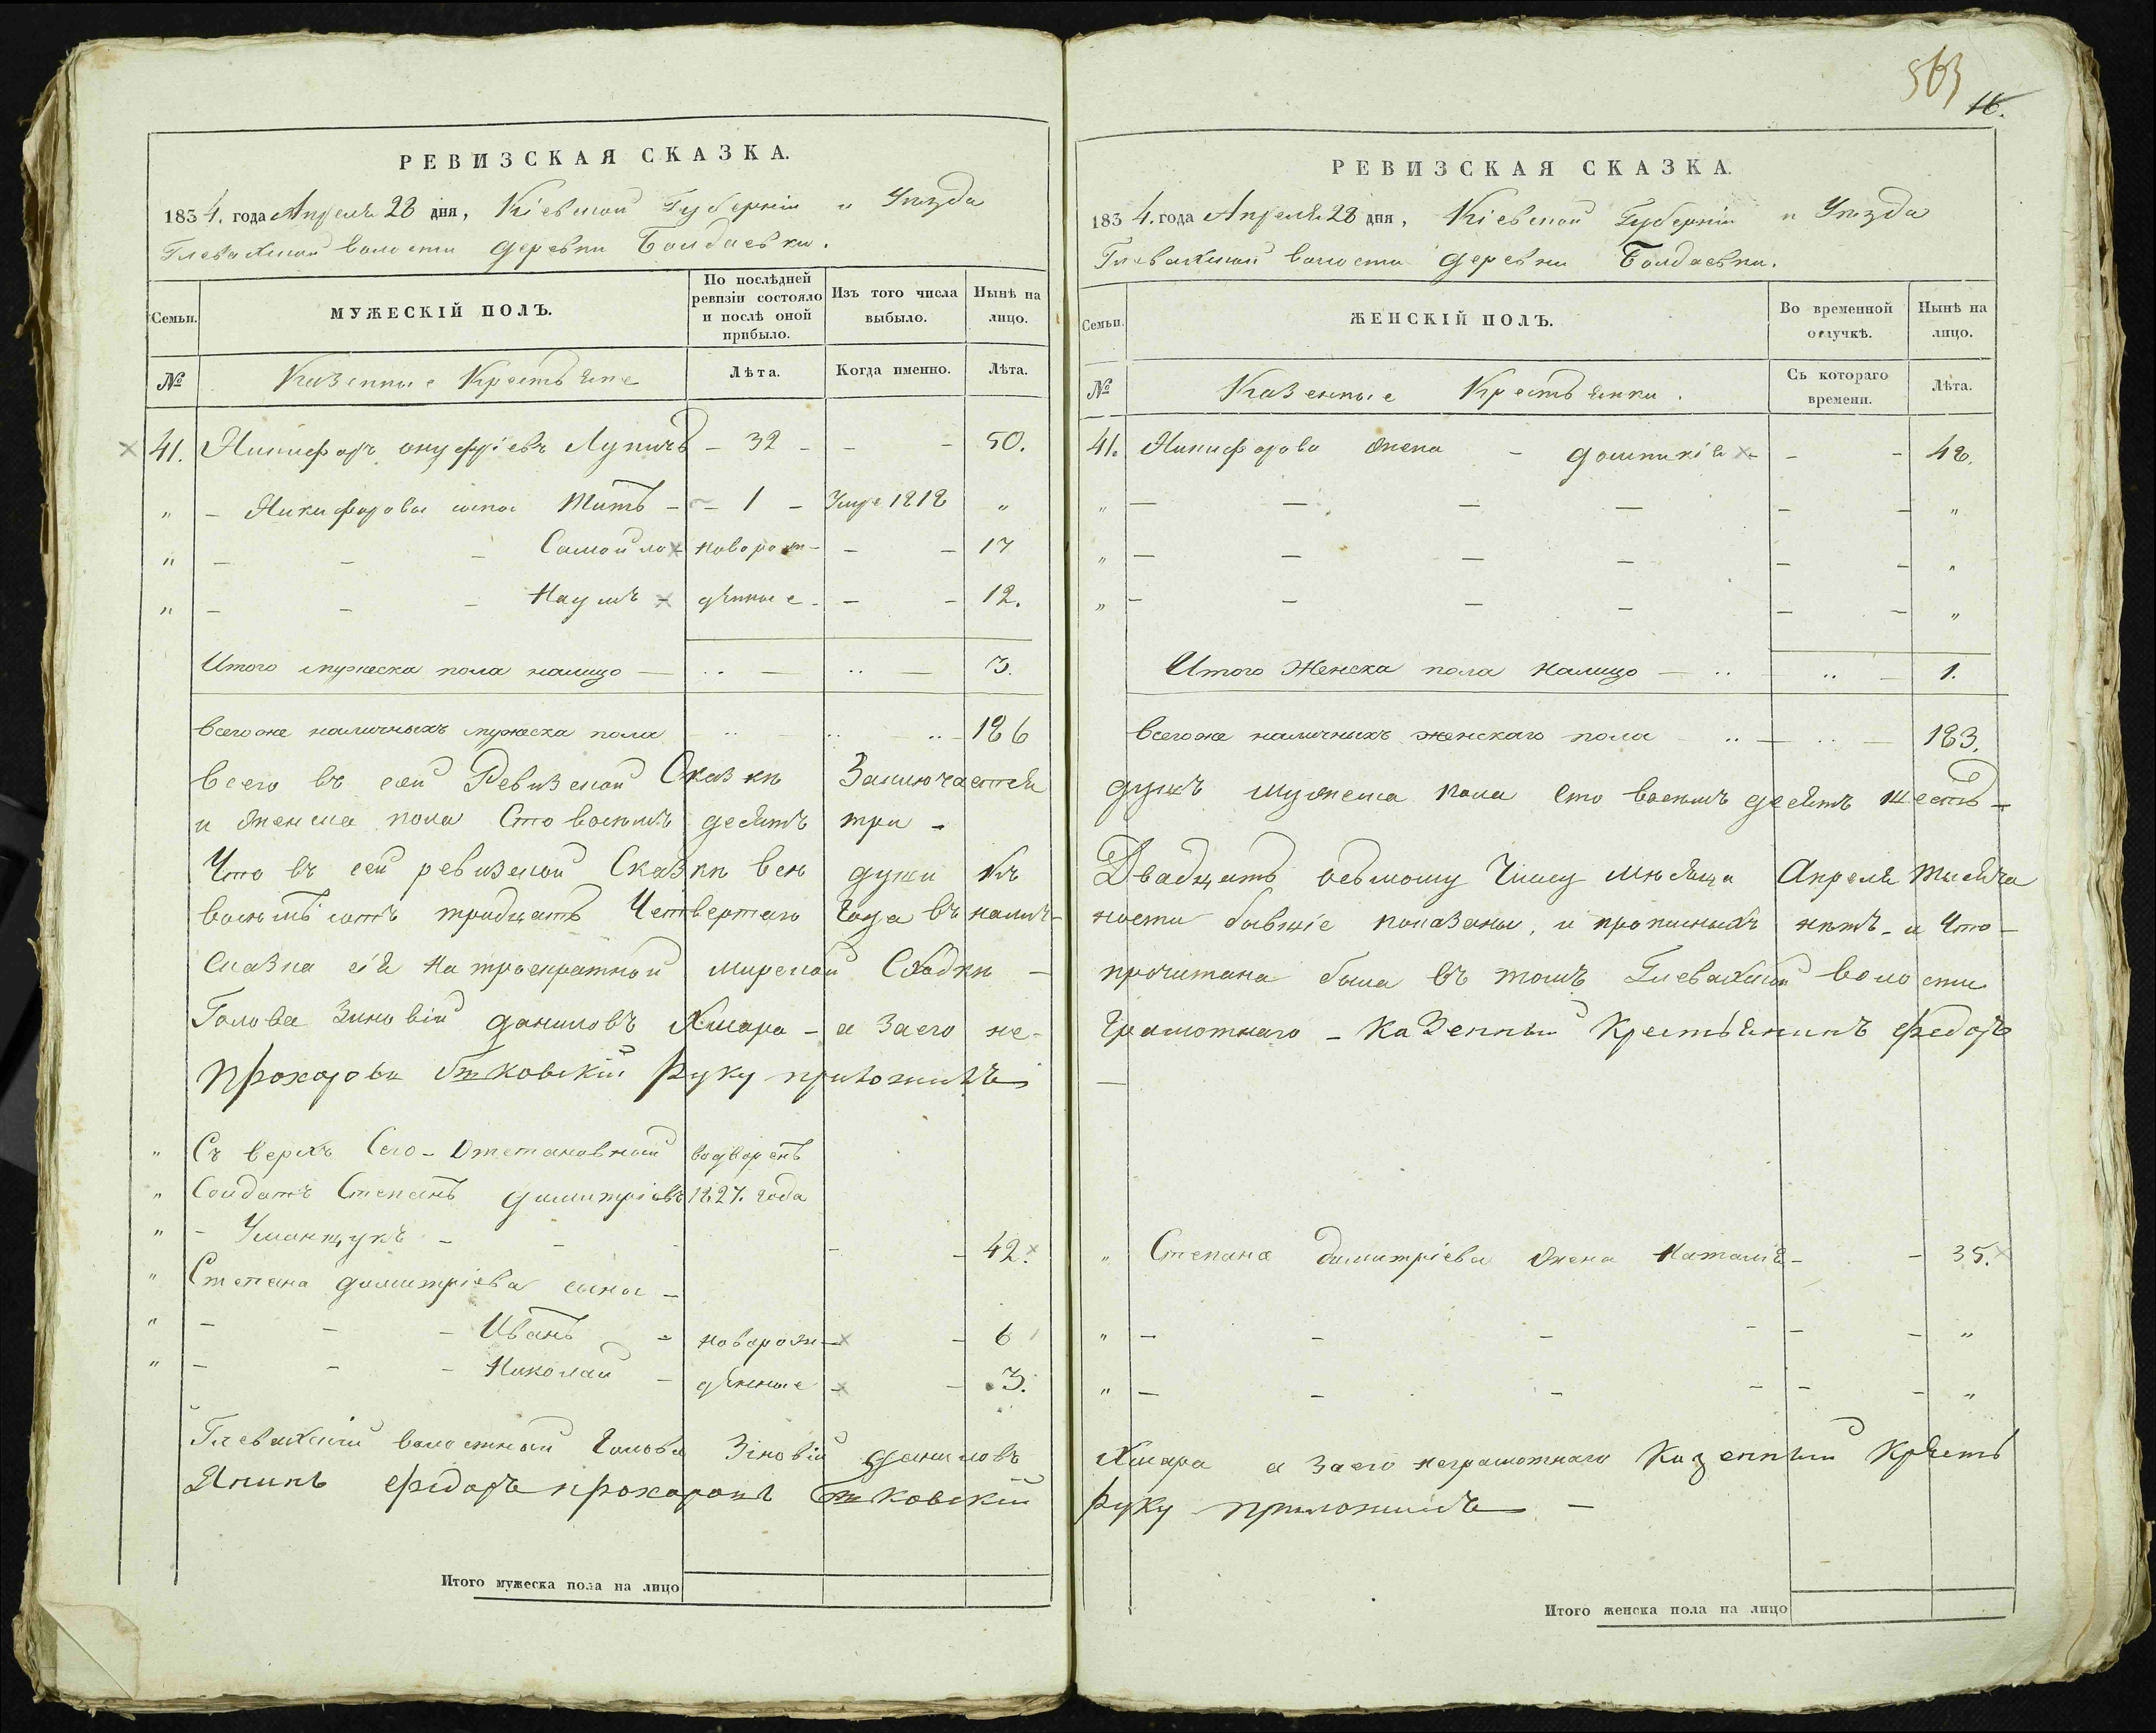 563
16.
РЕВИЗСКАЯ СКАЗКА.
1834. года Апреля 28 дня, Кіевской Губерніи и Уѣзда
Глевахской волости деревни Болдаевки.
Семьи. МУЖЕСКІЙ ПОЛЪ. По послѣдней ревизіи состояло и послѣ оной прибыло. Изъ того числа выбыло. Нынѣ на лицо.
№ Казенные Крестьяне Лѣта. Когда именно. Лѣта.
41. Никифоръ онуфріевъ - 32 - - - 50.
" - Никифоровы сыны Титъ - - 1 - Умре 1818 "
" - - - Самойло новорож- - - 17
" - - - Наумъ - дѣнные - - - 12.
Итого мужеска пола налицо — .. — .. — 3.
Всего же наличныхъ мужеска пола .. .. .. 186
всего въ сей Ревизской Сказкѣ Заключается
и женска пола Сто восемъ десятъ три -
Что въ сей ревизской Сказкѣ всѣ души къ
восемъ сотъ тридцать Четвертаго Года въ налич-
Сказка сія на троекратной мирской Сходкѣ -
Голова Зиновій даниловъ Хмара - а за его не-
прохоровъ руку приложилъ
" Съ верхъ Сего - Отстановной водворенъ
" Солдатъ Степанъ димитріевъ 1827. года
" - Уманщукъ - - - - - 42.
" Степана димитріева сыны -
" - - - Иванъ - новорож- - 6
" - - - Николай - дѣнные - - 3.
Глевахскій волостной Голова Зіновій даниловъ
Янинъ федоръ прохоровъ
Итого мужеска пола на лицо
РЕВИЗСКАЯ СКАЗКА.
1834. года Апреля 28 дня, Кіевской Губерніи и Уѣзда
Глевахской волости деревни Болдаевки.
Семьи. ЖЕНСКІЙ ПОЛЪ. Во временной отлучкѣ. Нынѣ на лицо.
№ Казенные Крестьянки. Съ котораго времени. Лѣта.
41. Никифорова жена - домникія - - - 48.
" — — — — - - "
" — — — — - - "
" — — — — - - "
Итого Женска пола налицо — .. — .. — 1.
Всего же наличныхъ женскаго пола .. — .. — 183.
душъ мужеска пола сто восемъ десятъ шесть -
Двадцать осьмому Числу мѣсяца Апреля Тысяча
ности бывшіе показаны, и прописныхъ нѣтъ - и Что -
прочитана была въ томъ Глевахской волости
Грамотнаго - Казенный Крестьянинъ федоръ
—
" Степана димитріева жена Наталія - - 35.
" — - - - - - "
" — - - - - - "
Хмара а за его неграмотнаго Казенный Крѣсть
руку приложилъ -
Итого женска пола на лицо